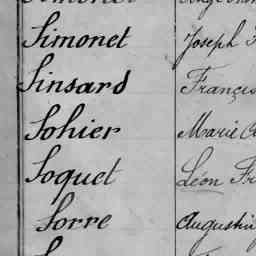 Simonet Joseph
Sinsard Françis
Sohier Marie
Soquet Léon
Sorre Augustin